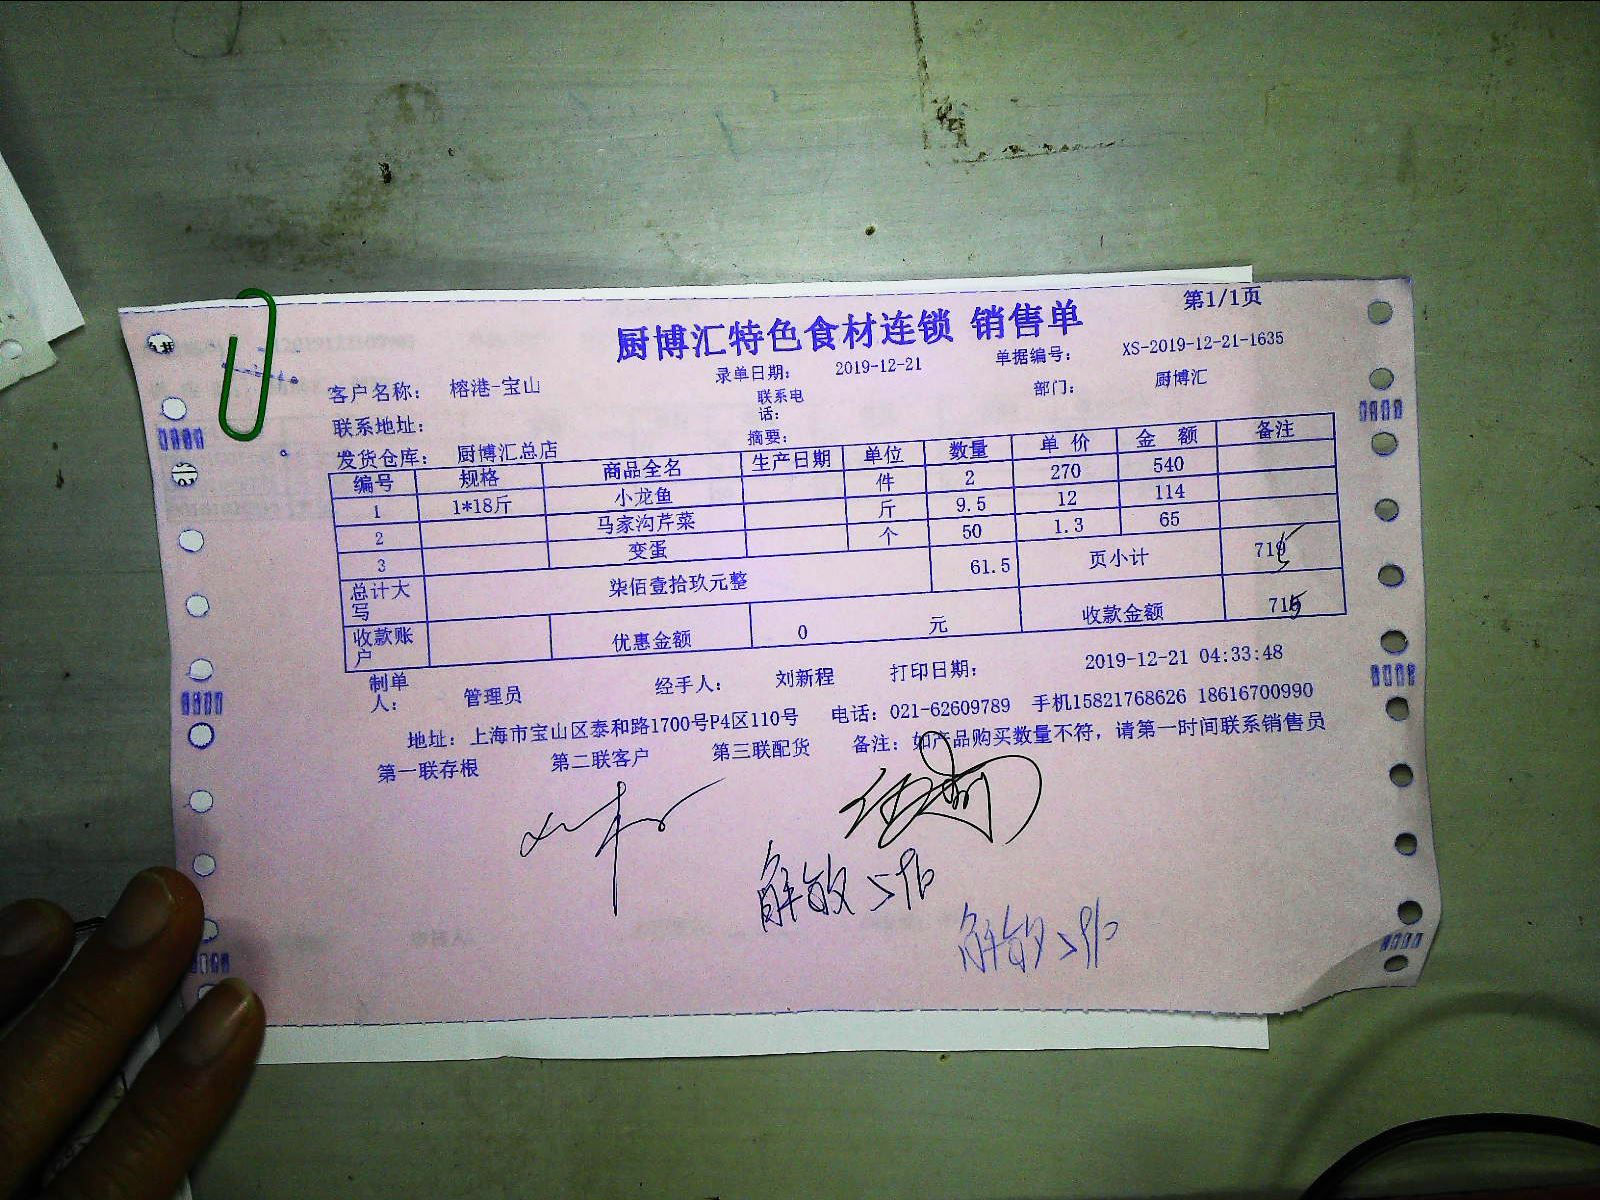 第1/1页
厨博汇特色食材连锁 销售单
客户名称： 榕港-宝山 录单日期： 2019-12-21 单据编号： XS-2019-12-21-1635
联系地址： 联系电话： 部门： 厨博汇
发货仓库： 厨博汇总店 摘要：
编号 规格 商品全名 生产日期 单位 数量 单 价 金 额 备注
1 1*18斤 小龙鱼 件 2 270 540
2 马家沟芹菜 斤 9.5 12 114
3 变蛋 个 50 1.3 65
总计大写 柒佰壹拾玖元整 61.5 页小计 715
收款账户 优惠金额 0 元 收款金额 715
制单人： 管理员 经手人： 刘新程 打印日期： 2019-12-21 04:33:48
地址：上海市宝山区泰和路1700号P4区110号 电话：021-62609789 手机15821768626 18616700990
第一联存根 第二联客户 第三联配货 备注：如产品购买数量不符，请第一时间联系销售员